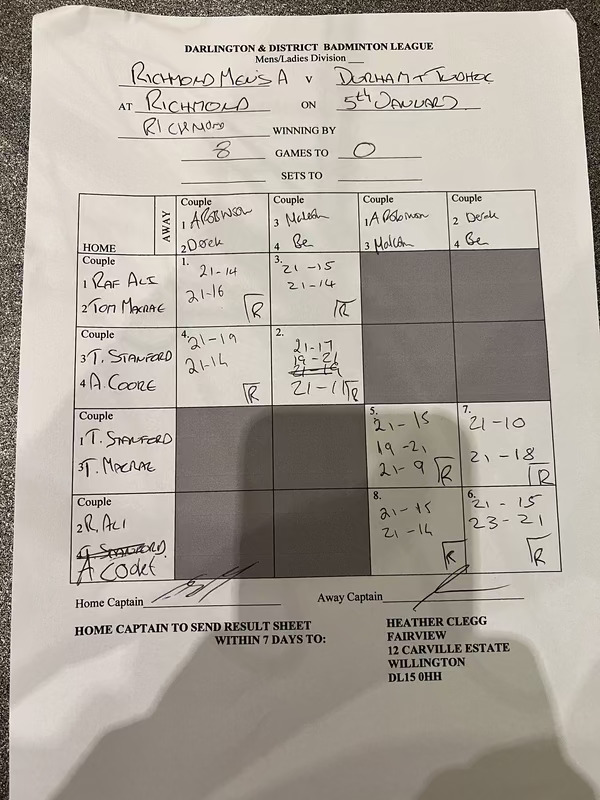 DARLINGTON & DISTRICT BADMINTON LEAGUE
Mens/Ladies Division ___
RICHMOND MEN'S A V DURHAM
AT RICHMOND ON 5th JANUARY
RICHMOND WINNING BY
8 GAMES TO 0
SETS TO
HOME
AWAY
Couple
1 A ROBINSON
2 Derek
Couple
3 Malcolm
4 Ben
Couple
1 A Robinson
3 Malcolm
Couple
2 Derek
4 Ben
Couple
1 RAF ALI
2 TOM MACRAE
1.
21-14
21-16
R
3.
21-15
21-14
R
Couple
3 T. STANFORD
4 A. COOKE
4.
21-19
21-14
R
2.
21-17
19-21
21-11
R
Couple
1 T. STANFORD
3 T. MACRAE
5.
21-15
19-21
21-9
R
7.
21-10
21-18
R
Couple
2 R. ALI
STANFORD
A COOKE
8.
21-15
21-14
R
6.
21-15
23-21
R
Home Captain
Away Captain
HOME CAPTAIN TO SEND RESULT SHEET
WITHIN 7 DAYS TO:
HEATHER CLEGG
FAIRVIEW
12 CARVILLE ESTATE
WILLINGTON
DL15 0HH